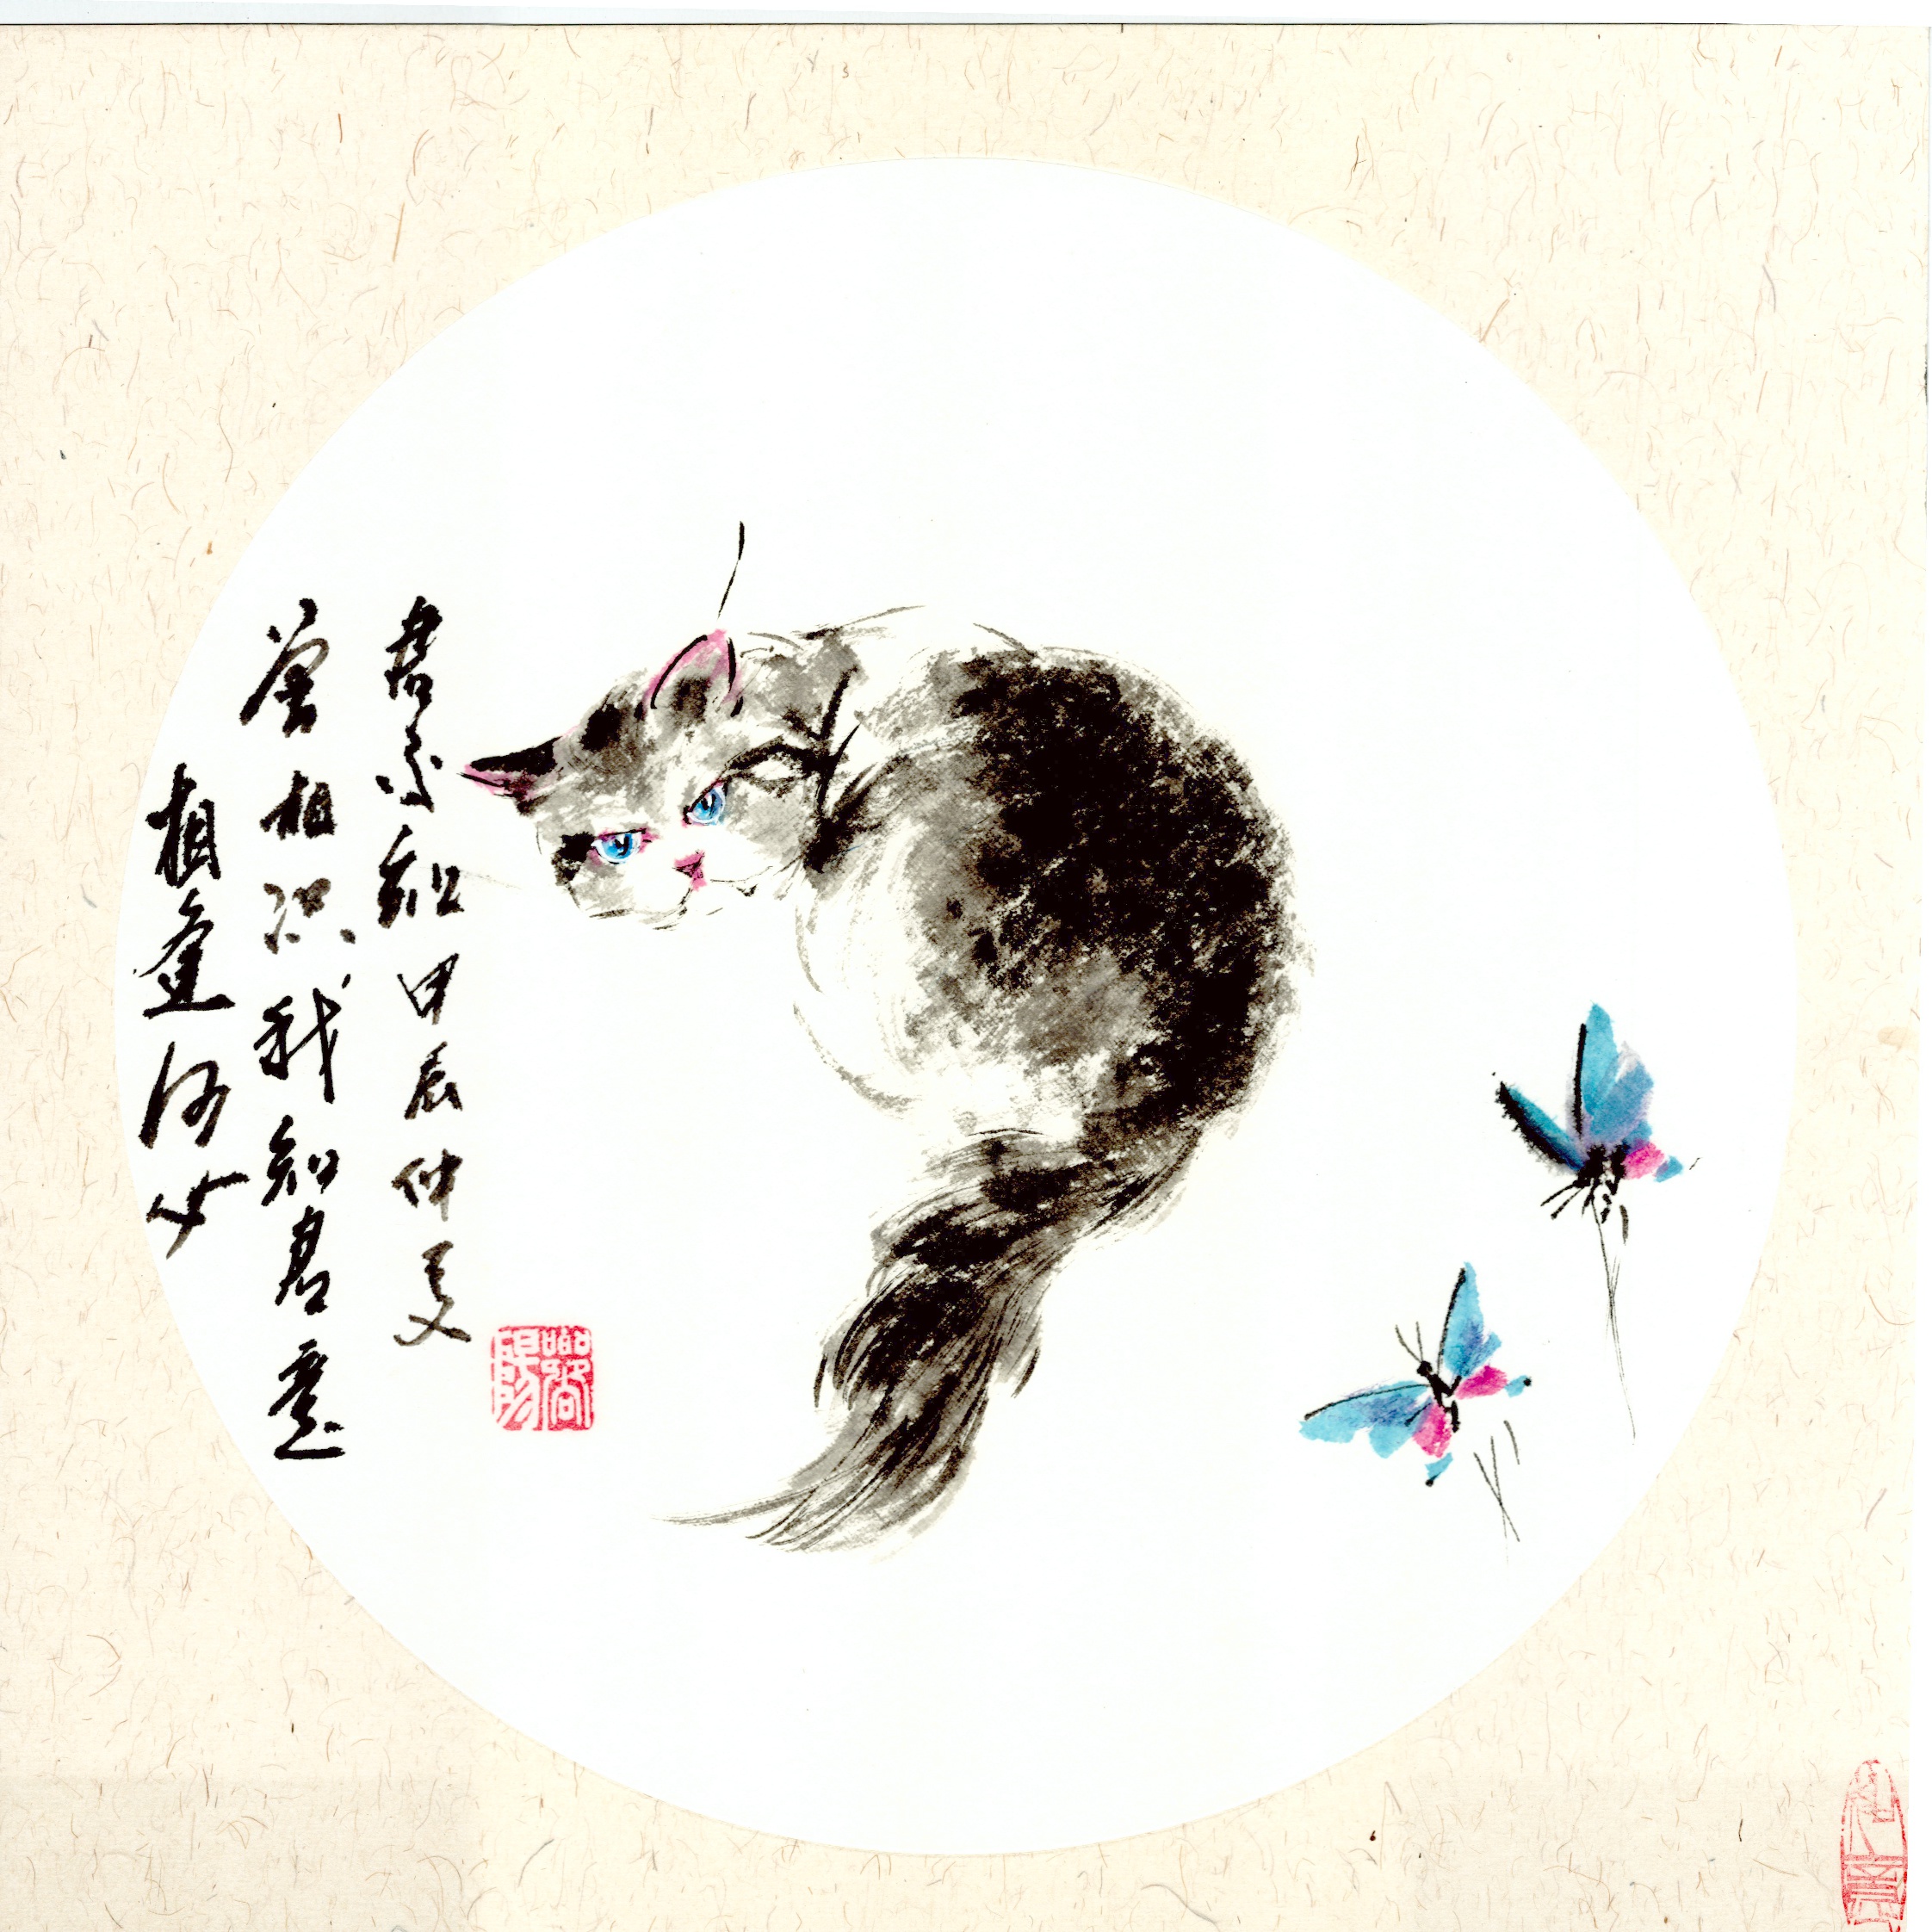 相逢何必
曾相识我知君意
君不知甲辰仲夏